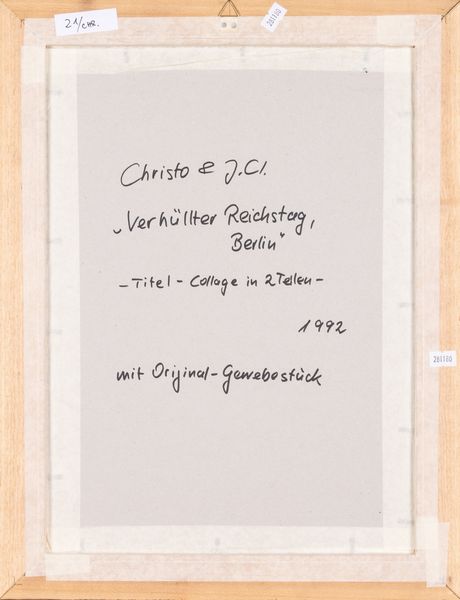 21/CHR.
281180
Christo & J.Cl.
„Verhüllter Reichstag,
Berlin"
- Titel - Collage in 2 Teilen -
1992
281180
mit Original-Gewebestück